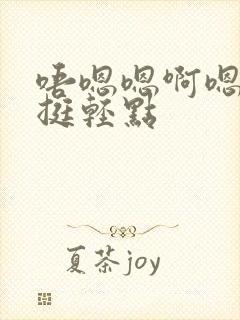 唔嗯嗯啊嗯
挺輕點
夏茶joy